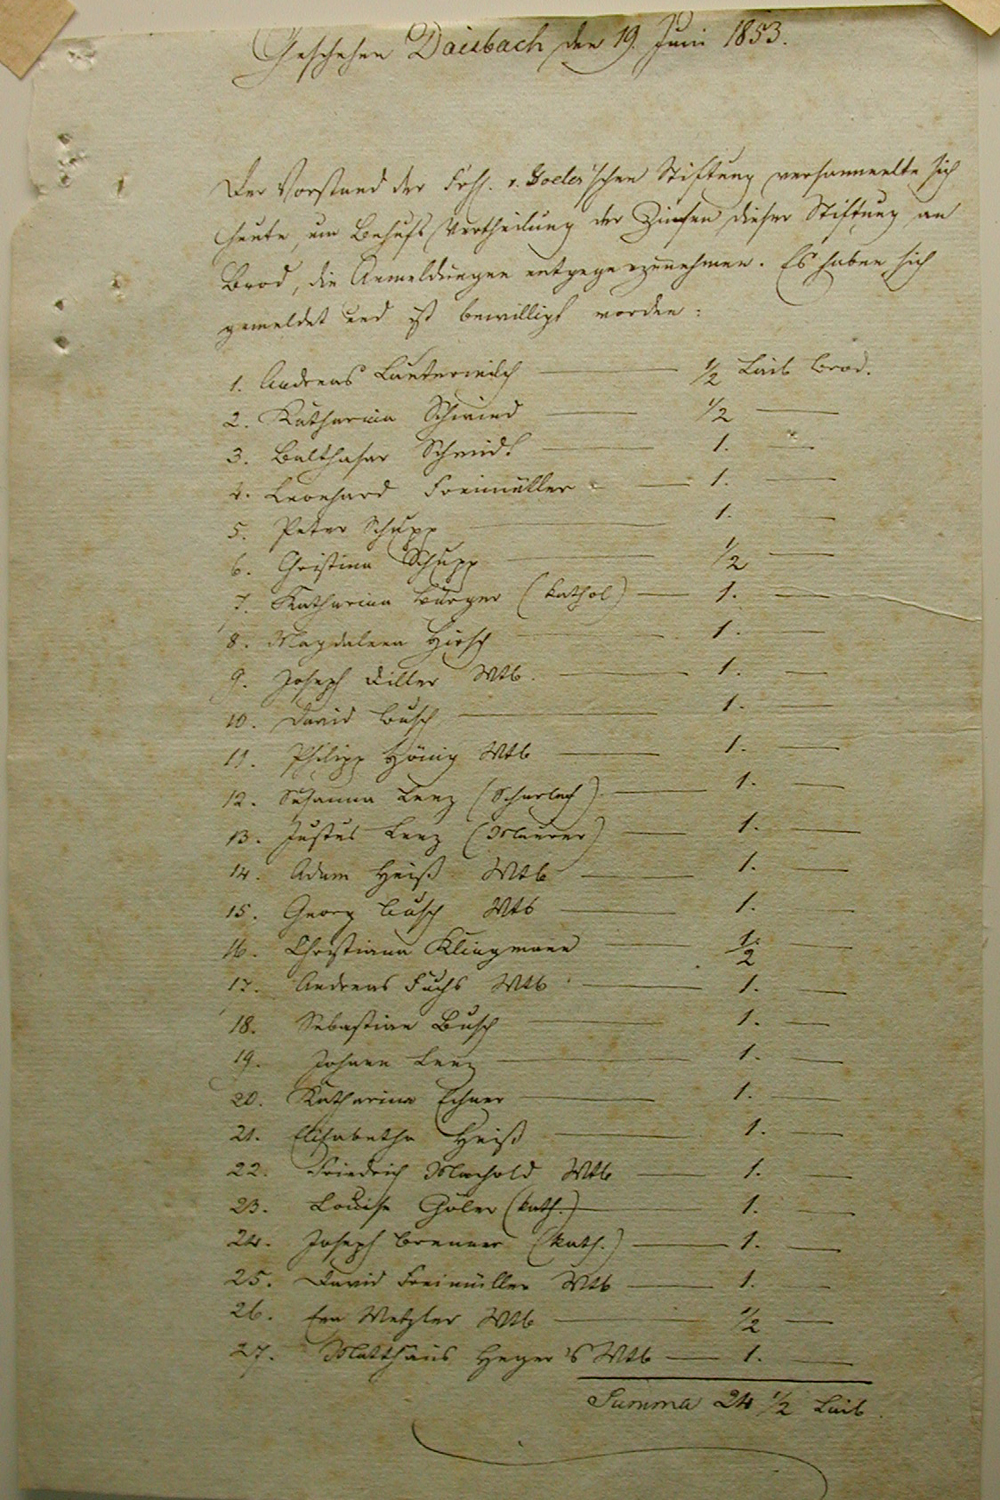 Geschehen Daisbach den 19. Juni 1853.
Der Vorstand der Frhl. v. Goeler'schen Stiftung versammelte sich
heute, um Behufs Vertheilung der Zinsen dieser Stiftung an
Brod, die Anmeldungen entgegenzunehmen. Es haben sich
gemeldet und ist bewilligt worden:
1. Andreas ½ Laib Brod.
2. Katharina Schmied ½ —
3. Balthasar Schmidt 1. —
4. Leonhard Freimüller 1. —
5. Peter Schupp 1. —
6. Christina Schupp ½ —
7. Katharina Burger (kathol) 1. —
8. Magdalena Hirsch 1. —
9. Joseph Ziller Wtb. 1. —
10. David Busch 1. —
11. Philipp Hönig Wtb 1. —
12. Susanna Lenz 1. —
13. Justus Lenz (Maurer) 1. —
14. Adam Heiß Wtb 1. —
15. Georg Busch Wtb 1. —
16. Christiana Klingmann ½ —
17. Andreas Fuchs Wtb 1. —
18. Sebastian Busch 1. —
19. Johann Lenz 1. —
20. Katharina Echner 1. —
21. Elisabetha Heiß 1. —
22. Friedrich Machold Wtb 1. —
23. Louise Göler (kath.) 1. —
24. Joseph Brenner (kath.) 1. —
25. David Freimüller Wtb 1. —
26. Eva Metzler Wtb ½ —
27. Matthäus Heger's Wtb 1. —
Summa 24 ½ Laib